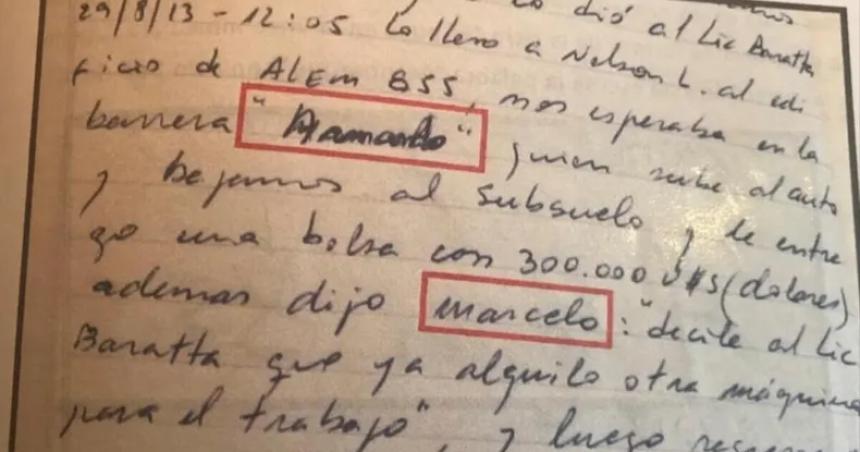 lo dió al Lic Baratta
29/8/13 - 12:05 Lo llevo a Nelson L. al edi
ficio de ALEM 855, nos esperaba en la
barrera "Armando" quien sube al auto
y bajamos al subsuelo y le entre
go una bolsa con 300.000 U$S (dolares)
ademas dijo Marcelo: "decile al Lic
Baratta que ya alquilo otra máquina
para el trabajo", y luego